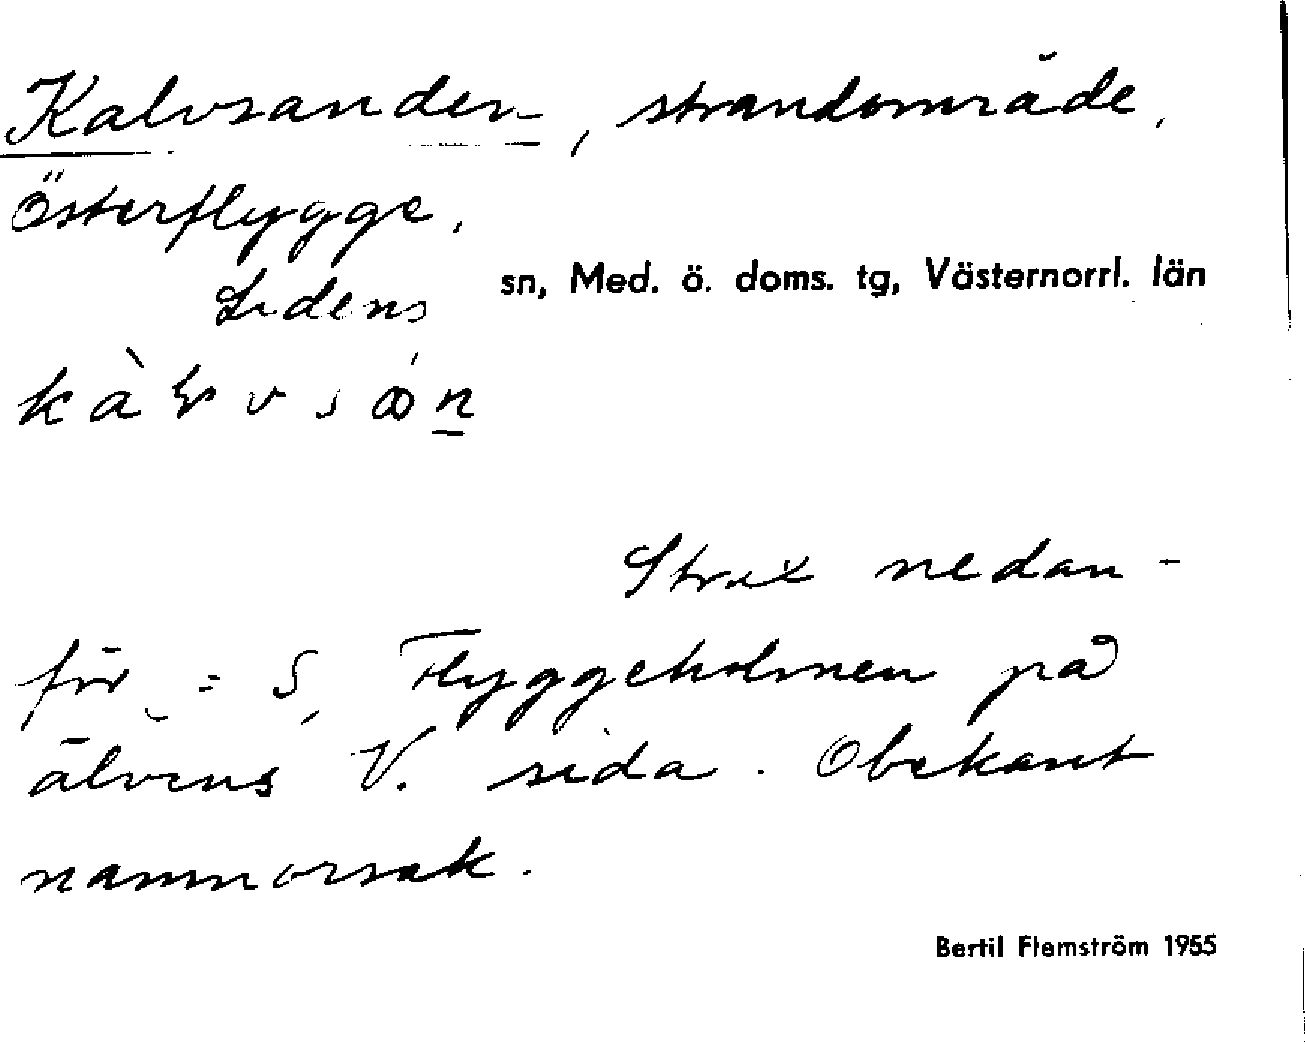 Kalvsanden, strandområde,
Österflygge,
Lidens sn, Med. ö. doms. tg, Västernorrl. län
Strax nedan-
för = S, Flyggeholmen på
älvens V. sida. Obekant
namnorsak.
Bertil Flemström 1955